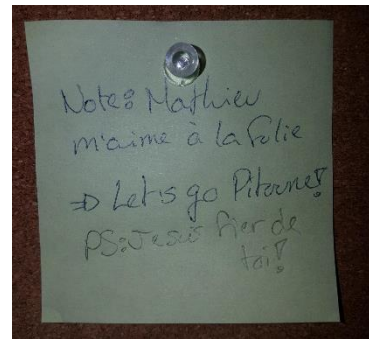 Note: Mathieu
m'aime à la folie
=> Let's go Pitoune!
PS: Je suis fier de
toi!